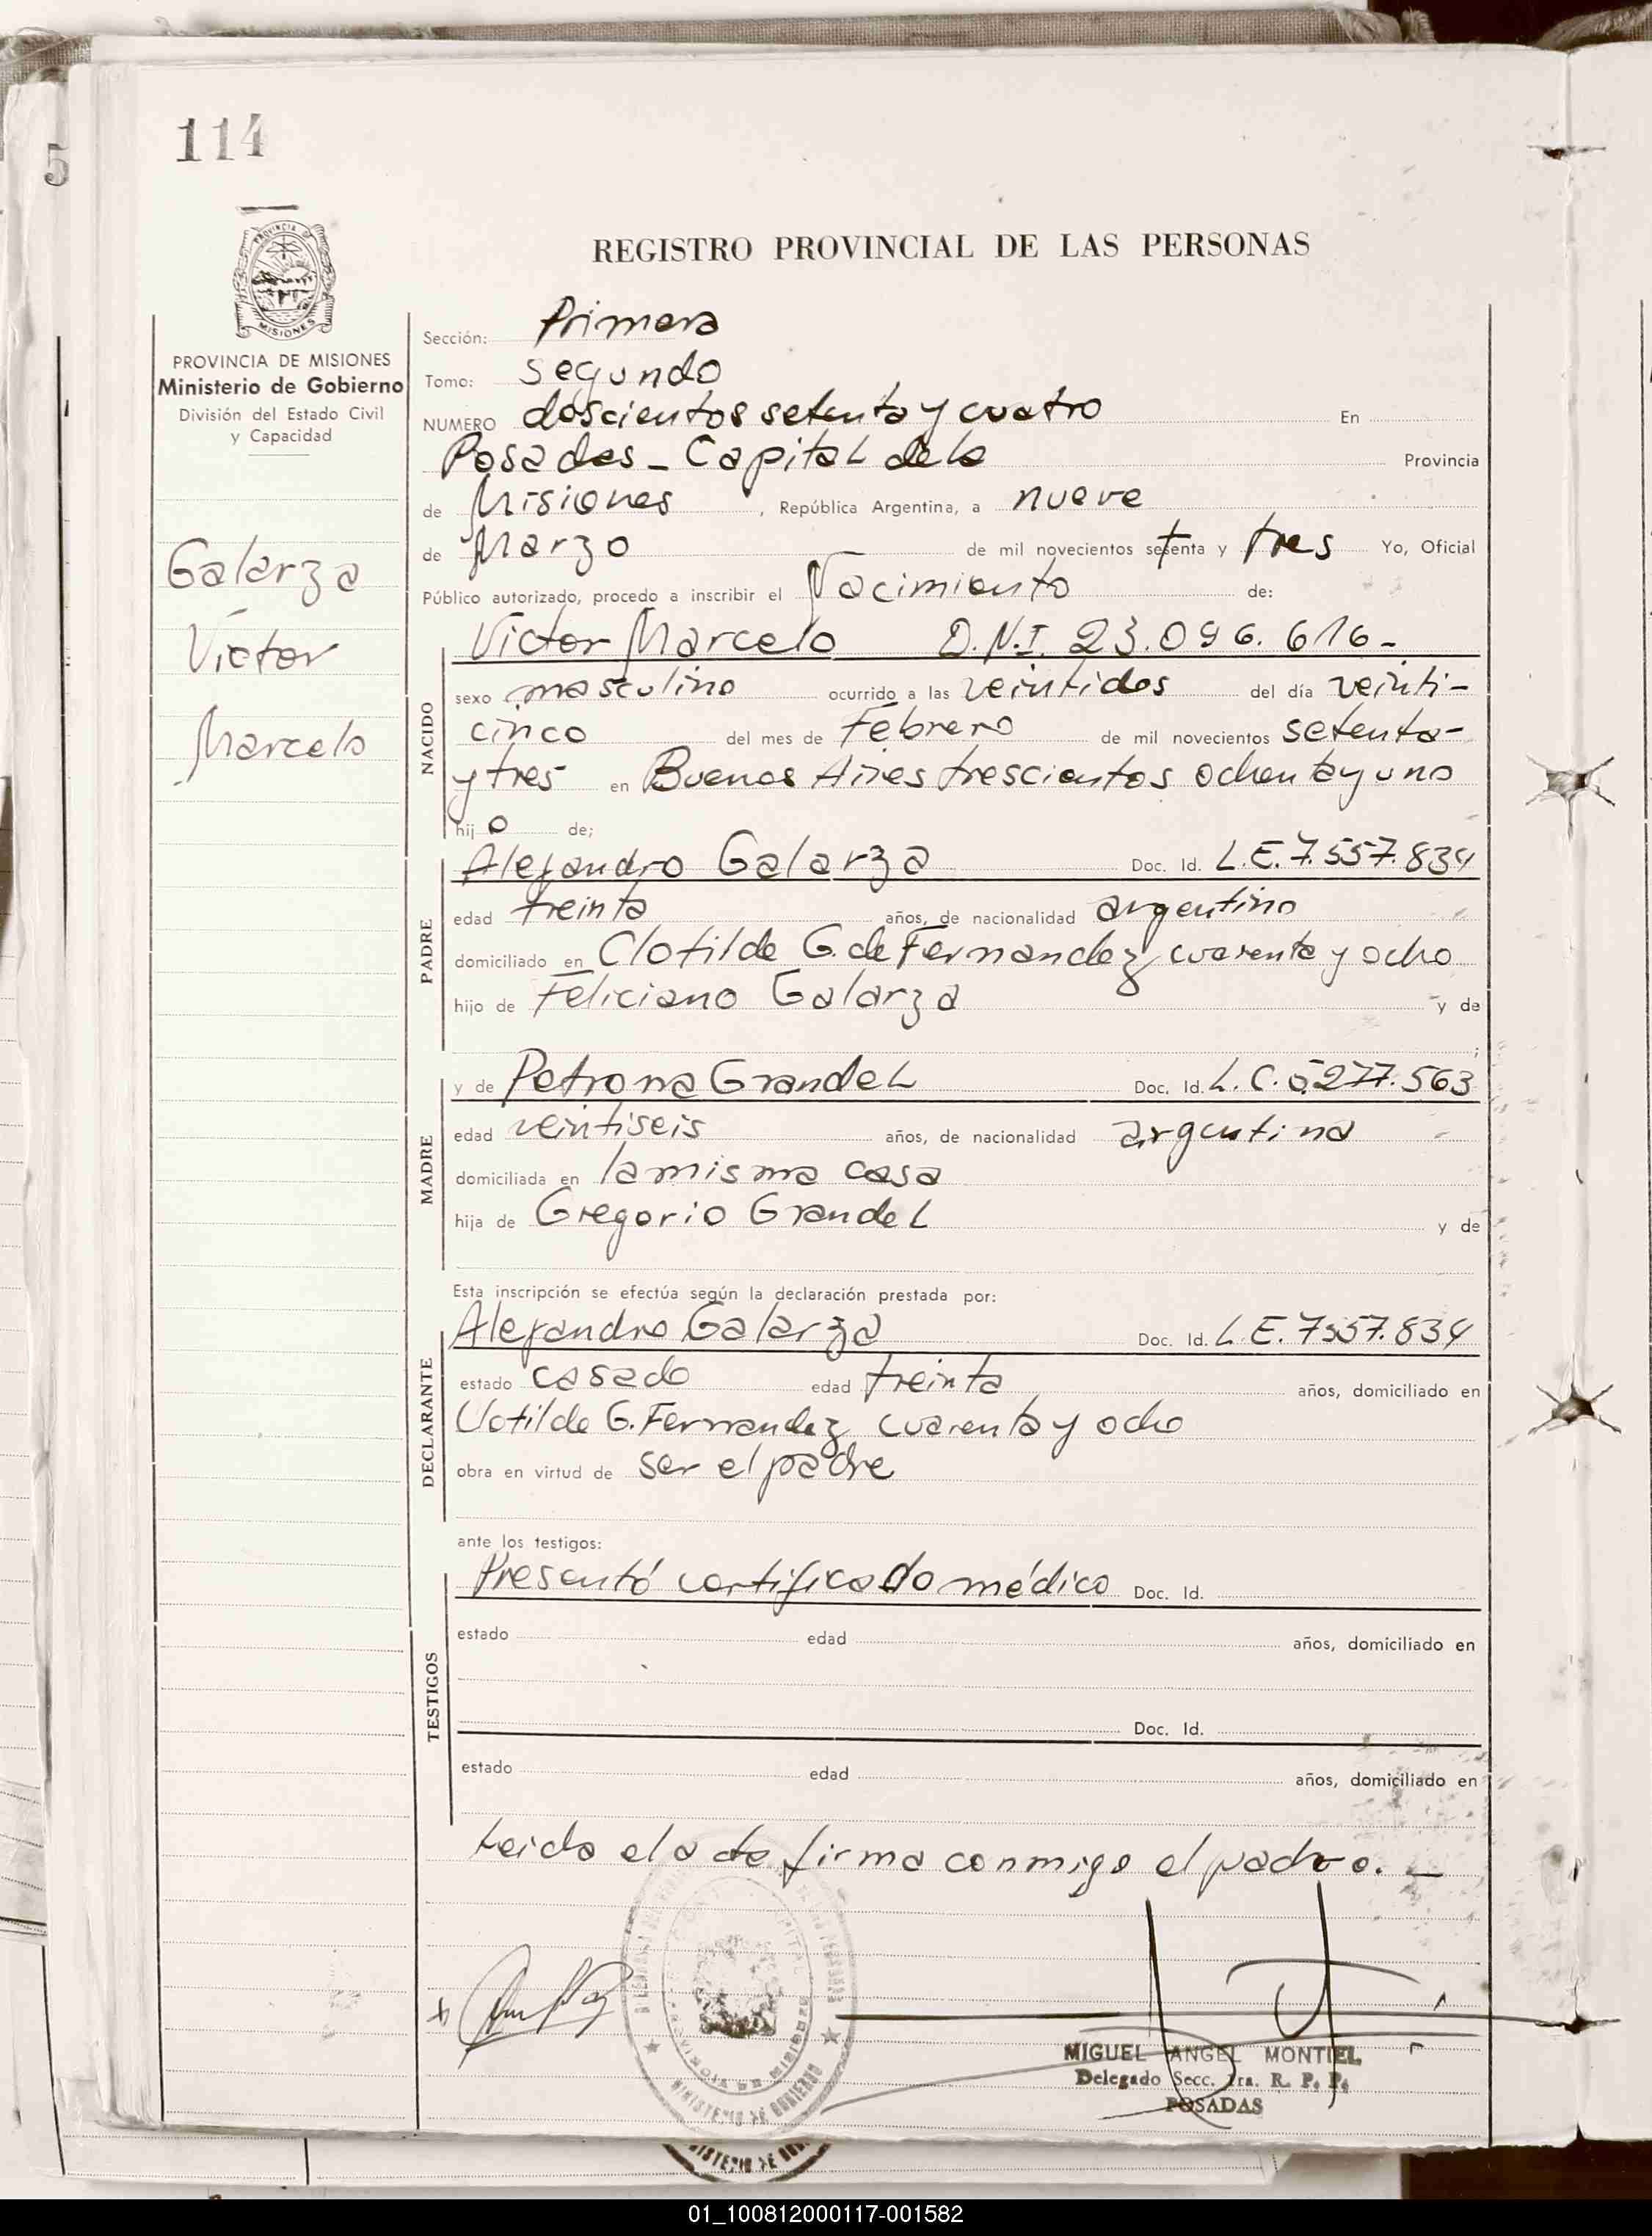 114
5
PROVINCIA DE MISIONES
Ministerio de Gobierno
División del Estado Civil
y Capacidad
Galarza
Victor
Marcelo
REGISTRO PROVINCIAL DE LAS PERSONAS
Sección: Primera
Tomo: segundo
NUMERO doscientos setenta y cuatro En
Posadas - Capital de la Provincia
de Misiones, República Argentina, a nueve
de Marzo de mil novecientos setenta y tres Yo, Oficial
Público autorizado, procedo a inscribir el Nacimiento de:
NACIDO
Victor Marcelo D.N.I. 23.096.616-
sexo masculino ocurrido a las veintidos del día veinti-
cinco del mes de Febrero de mil novecientos setenta-
y tres en Buenos Aires trescientos ochenta y uno
hijo de;
PADRE
Alejandro Galarza Doc. Id. L.E. 7.557.834
edad treinta años, de nacionalidad argentino
domiciliado en Clotilde G. de Fernandez cuarenta y ocho
hijo de Feliciano Galarza y de
;
MADRE
y de Petrona Grandel Doc. Id. L.C. 277.563
edad veintiseis años, de nacionalidad argentina
domiciliada en la misma casa
hija de Gregorio Grandel y de
Esta inscripción se efectúa según la declaración prestada por:
DECLARANTE
Alejandro Galarza Doc. Id. L.E. 7557.834
estado casado edad treinta años, domiciliado en
Clotilde G. Fernandez cuarenta y ocho
obra en virtud de ser el padre
ante los testigos:
TESTIGOS
Presentó certificado médico Doc. Id.
estado edad años, domiciliado en
Doc. Id.
estado edad años, domiciliado en
Leida el acta firma conmigo el padre. -
MINISTERIO DE GOBIERNO
MIGUEL ANGEL MONTIEL
Delegado Secc. 1ra. R. P. P.
POSADAS
01_100812000117-001582